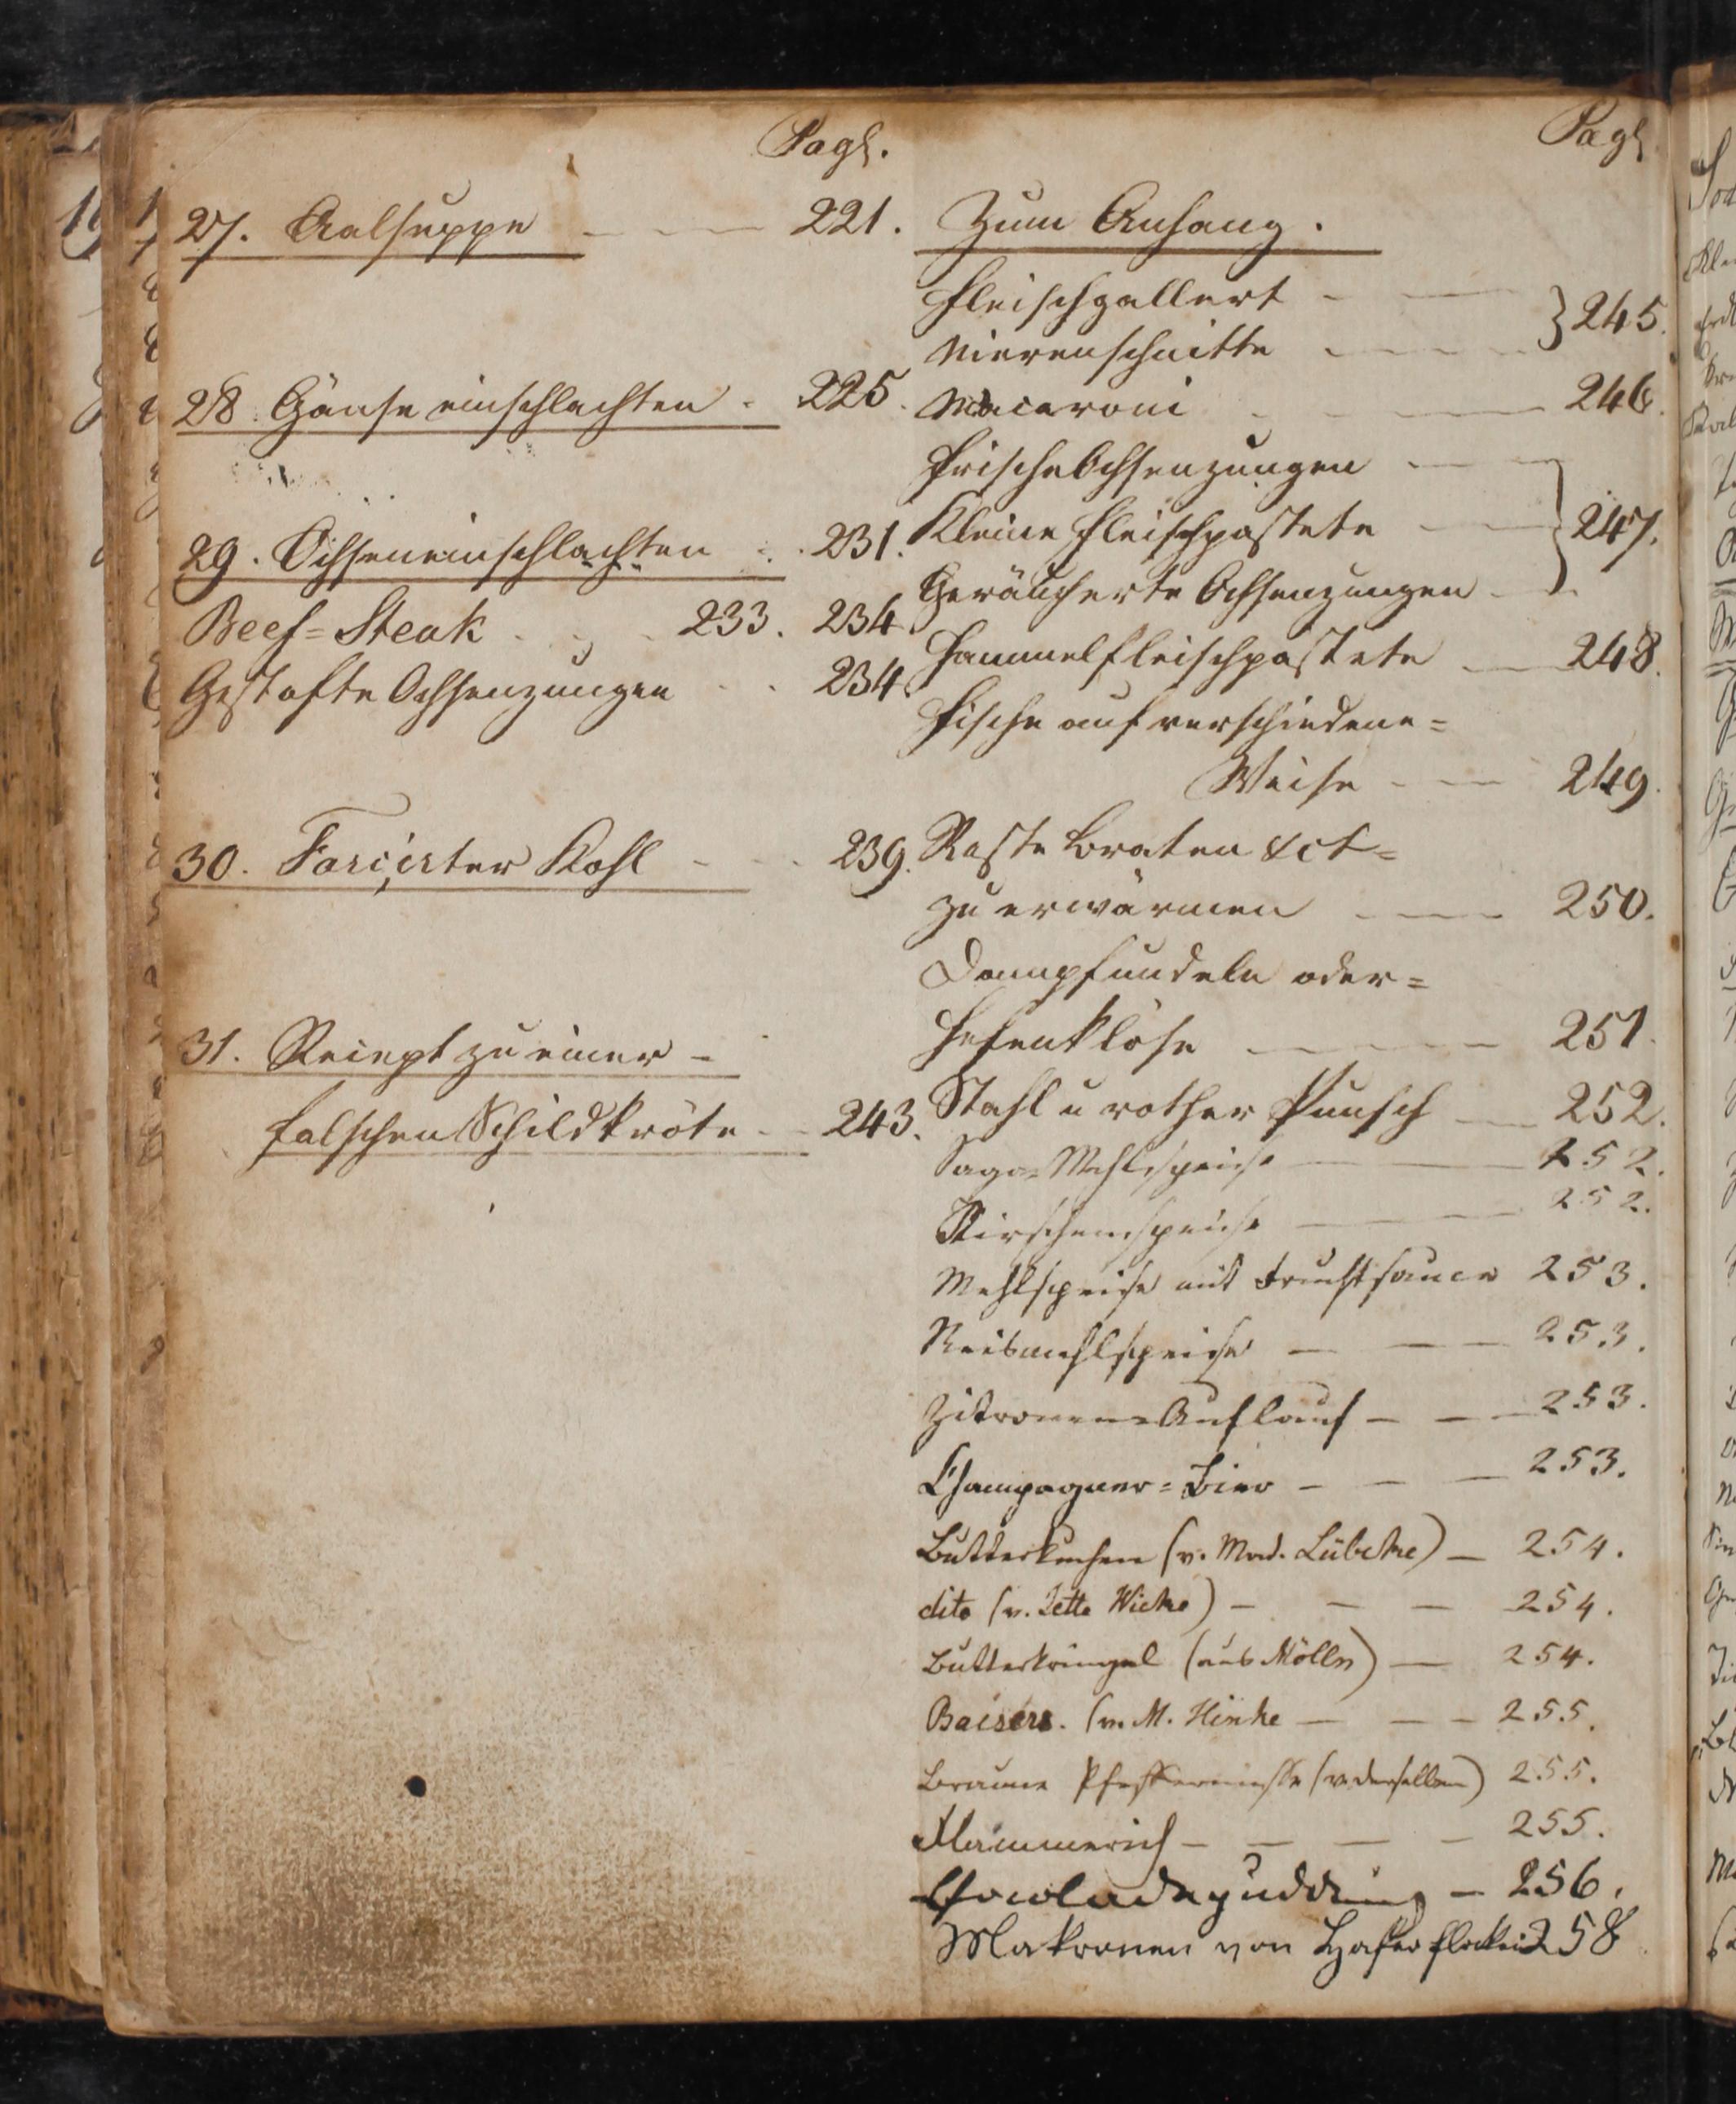 Pag.
27. Aalsuppe 221.
28. Gänse einschlachten 225.
29. Ochseneinschlachten 231.
Beef=Steak 233. 234
Gestofte Ochsenzungen 234.
30. Farcirter Kohl 239.
31. Recept zu einer
falschen Schildkröte 243.
Pag.
Zum Anhang.
Fleischgallert
Nierenschnitte } 245.
Macaroni 246.
Frische Ochsenzungen
Kleine Fleischpastete } 247.
Geräucherte Ochsenzungen
Hammelfleischpastete 248.
Fische auf verschiedene=
Weise 249.
Reste Braten &ct=
zu erwärmen 250.
Dampfnudeln oder=
Hefenklöse 251.
Stahl u rother Punsch 252.
Sago=Mehlspeise 252.
Kirschenspeise 252.
Mehlspeise mit Fruchtsauce 253.
Reismehlspeise 253.
Zitronen=Auflauf 253.
Champagner=Bier 253.
Butterkuchen (v. Mad. Lübcke) 254.
dito (v. Jette Wicke) 254.
Butterkringel (aus Mölln) 254.
Baisers. (v. M. Hinke 255.
Braune Pfeffernüsse (v. derselben) 255.
255.
Chocoladepudding 256.
Makronen von Haferflocken 258